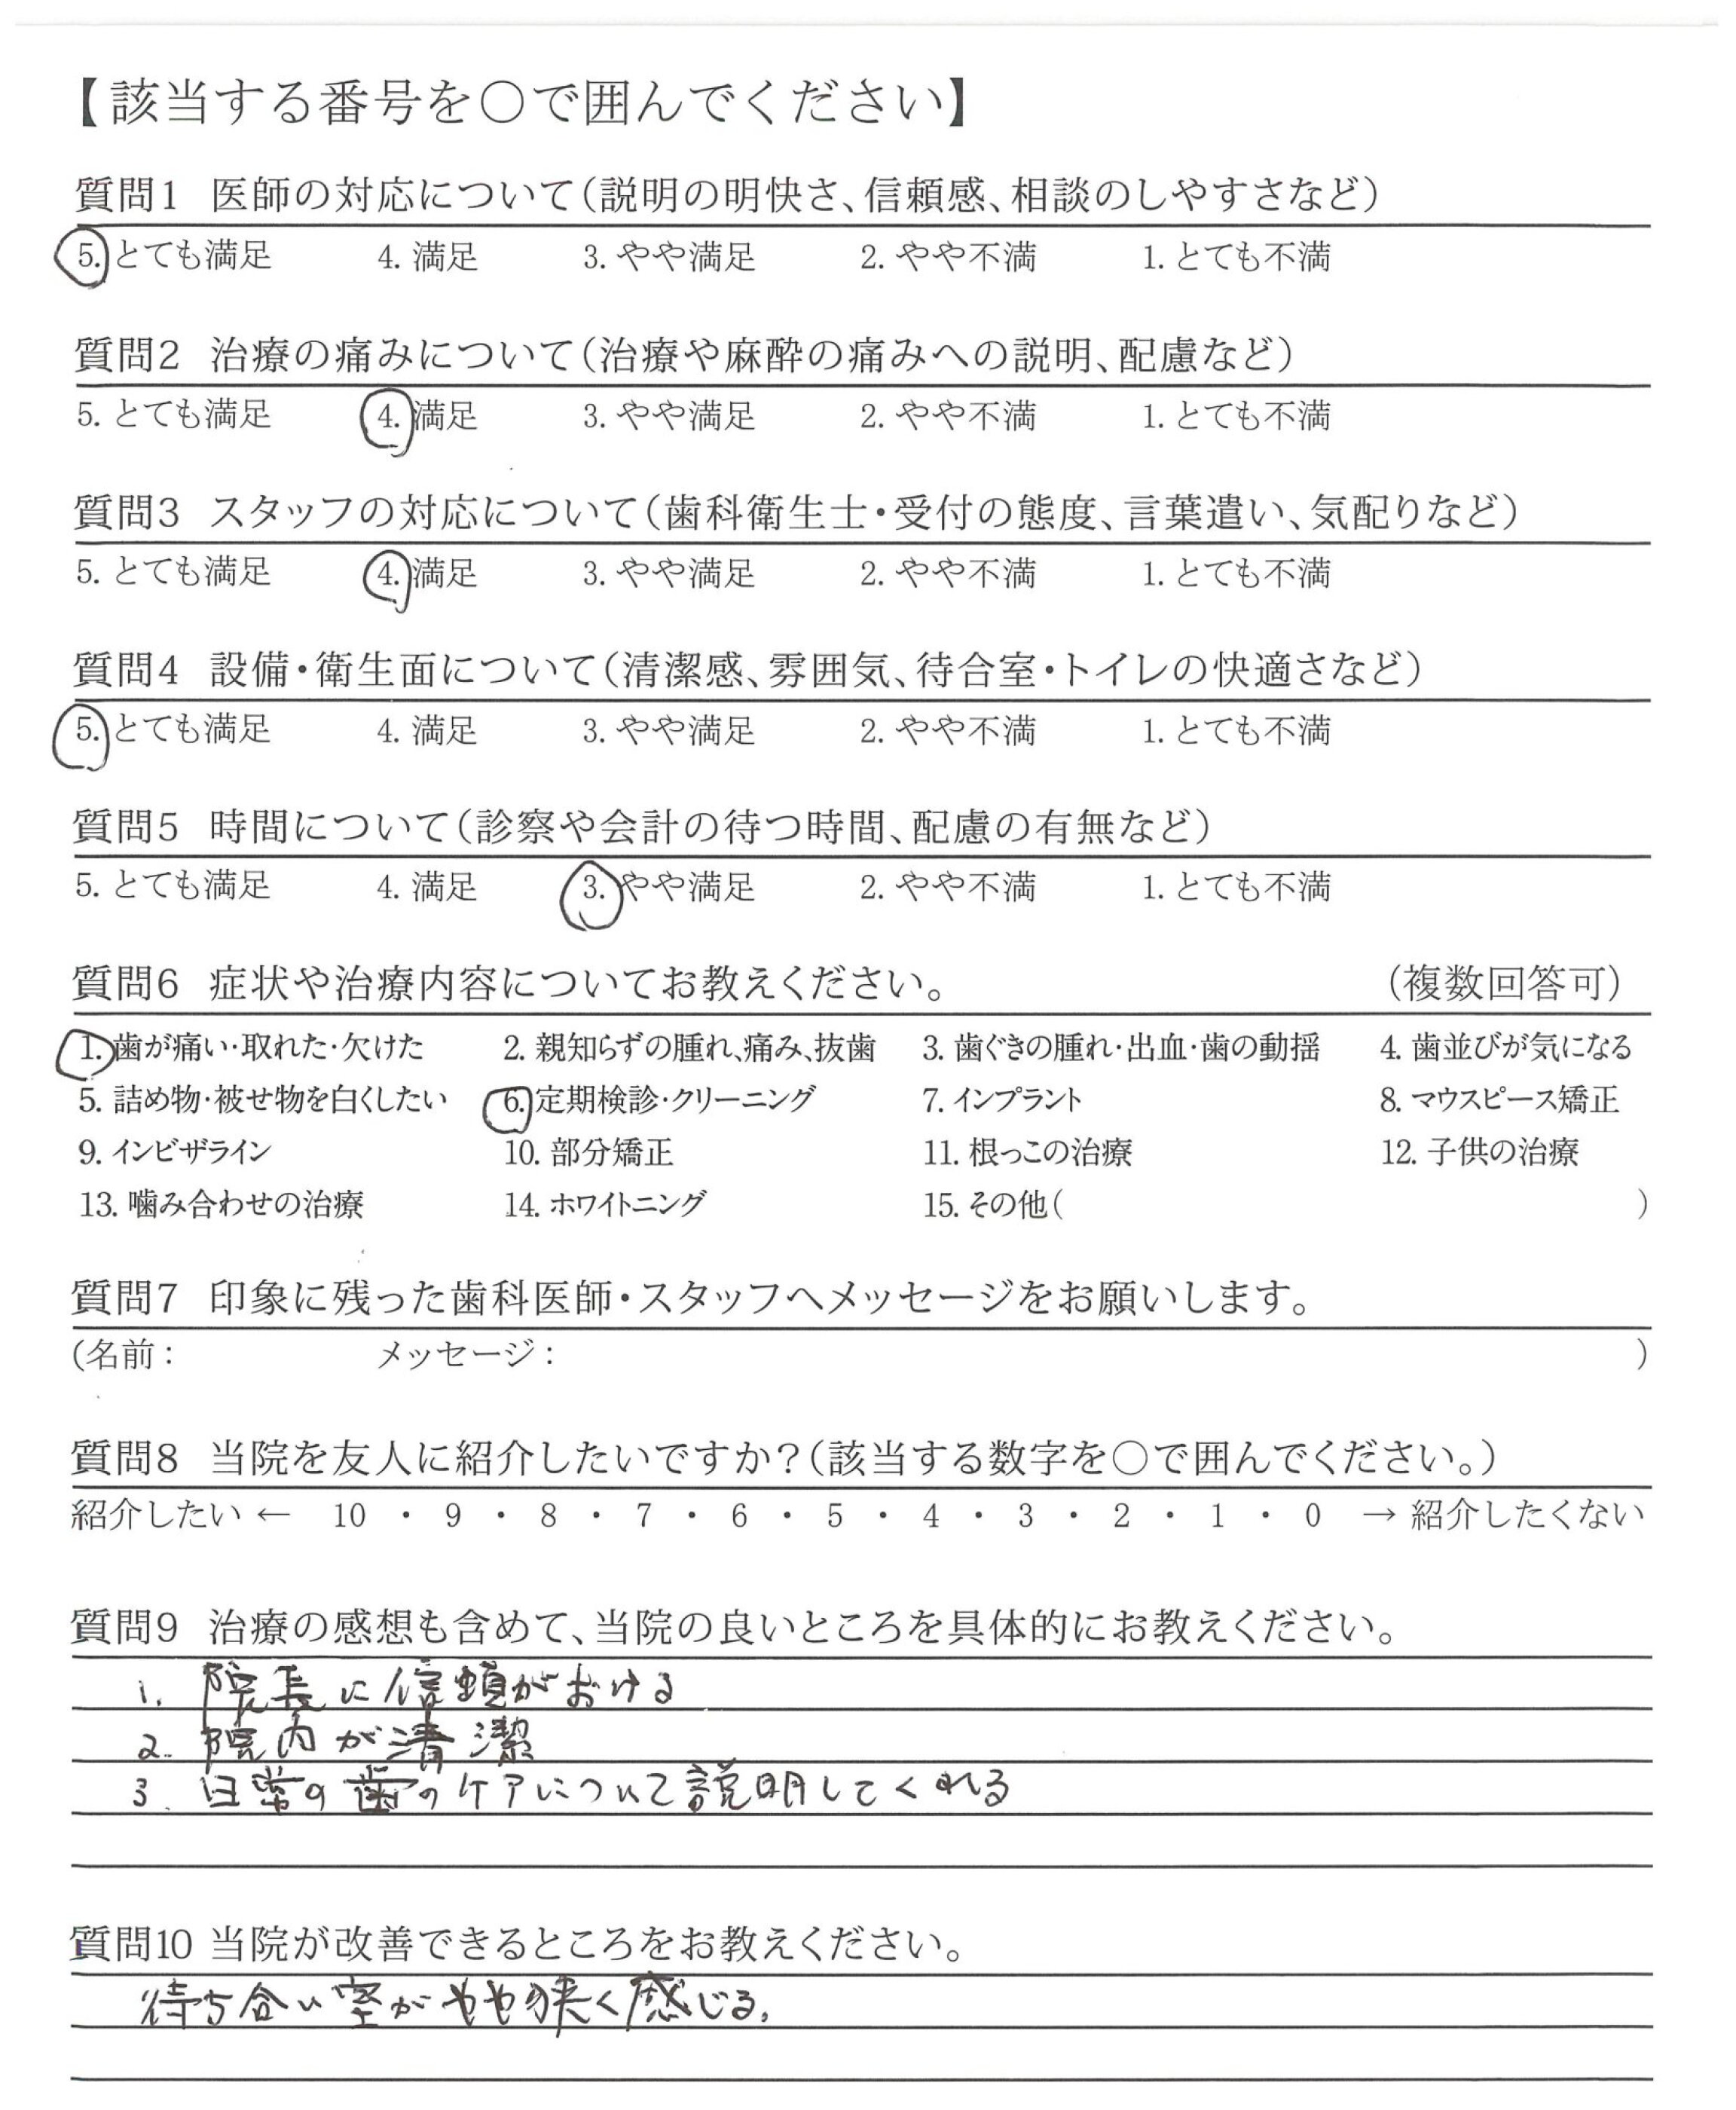 【該当する番号を○で囲んでください】
質問1 医師の対応について(説明の明快さ、信頼感、相談のしやすさなど)
5. とても満足 4. 満足 3. やや満足 2. やや不満 1. とても不満
質問2 治療の痛みについて(治療や麻酔の痛みへの説明、配慮など)
5. とても満足 4. 満足 3. やや満足 2. やや不満 1. とても不満
質問3 スタッフの対応について(歯科衛生士・受付の態度、言葉遣い、気配りなど)
5. とても満足 4. 満足 3. やや満足 2. やや不満 1. とても不満
質問4 設備・衛生面について(清潔感、雰囲気、待合室・トイレの快適さなど)
5. とても満足 4. 満足 3. やや満足 2. やや不満 1. とても不満
質問5 時間について(診察や会計の待つ時間、配慮の有無など)
5. とても満足 4. 満足 3. やや満足 2. やや不満 1. とても不満
質問6 症状や治療内容についてお教えください。 (複数回答可)
1. 歯が痛い・取れた・欠けた 2. 親知らずの腫れ、痛み、抜歯 3. 歯ぐきの腫れ・出血・歯の動揺 4. 歯並びが気になる
5. 詰め物・被せ物を白くしたい 6. 定期検診・クリーニング 7. インプラント 8. マウスピース矯正
9. インビザライン 10. 部分矯正 11. 根っこの治療 12. 子供の治療
13. 噛み合わせの治療 14. ホワイトニング 15. その他( )
質問7 印象に残った歯科医師・スタッフへメッセージをお願いします。
(名前: メッセージ: )
質問8 当院を友人に紹介したいですか?(該当する数字を○で囲んでください。)
紹介したい ← 10 ・ 9 ・ 8 ・ 7 ・ 6 ・ 5 ・ 4 ・ 3 ・ 2 ・ 1 ・ 0 → 紹介したくない
質問9 治療の感想も含めて、当院の良いところを具体的にお教えください。
1. 院長に信頼がおける
2. 院内が清潔
3. 日常の歯のケアについて説明してくれる
質問10 当院が改善できるところをお教えください。
待ち合い室がやや狭く感じる。